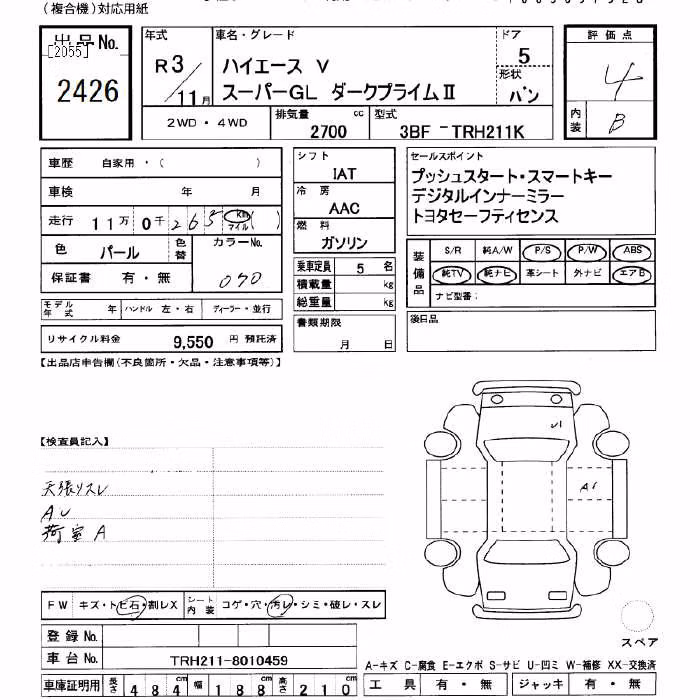 (複合機)対応用紙
出品No.
[2055]
2426
年式
R3/11月
車名・グレード
ハイエース V
スーパーGL ダークプライムⅡ
ドア
5
形状
バン
評価点
4
内装
B
2WD・4WD
排気量
2700
cc
型式
3BF-TRH211K
車歴 自家用・( )
車検 年 月
走行 11万 0千 265 Km マイル ( )
色 パール 色替 カラーNo. 070
保証書 有・無
シフト
IAT
冷房
AAC
燃料
ガソリン
乗車定員 5 名
積載量 kg
総重量 kg
書類期限
月 日
セールスポイント
プッシュスタート・スマートキー
デジタルインナーミラー
トヨタセーフティセンス
装備品
S/R 純A/W P/S P/W ABS
純TV 純ナビ 革シート 外ナビ エアB
ナビ型番:
後日品
モデル年式 年 ハンドル 左・右 ディーラー・並行
リサイクル料金 9,550 円 預託済
【出品店申告欄(不良箇所・欠品・注意事項等)】
【検査員記入】
天張リスレ
AU
荷室 A
U1
A1
FW キズ・トビ石・割レX シート内装 コゲ・穴・汚レ・シミ・破レ・スレ
登録 No.
車台 No. TRH211-8010459
車庫証明用 長さ 484 cm 幅 188 cm 高さ 210 cm
スペア
A-キズ C-腐食 E-エクボ S-サビ U-凹ミ W-補修 XX-交換済
工具 有・無 ジャッキ 有・無